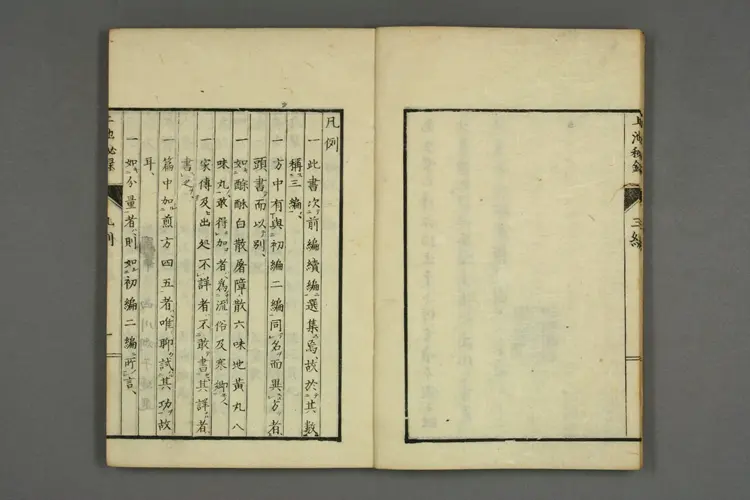 三編
凡例
一此書次前編續編選集焉故於其數
稱三編
一方中有與初編二編同名而異方者
頭書而以別
一如酴酥白散屠障散六味地黃丸八
味丸敢得加者為流俗及寒鄉
一家傳及出処不詳者不敢書其詳者
書之
一篇中如煎方四五者唯聊試其功故
耳
一如分量者則如初編二編所言
凡例
一